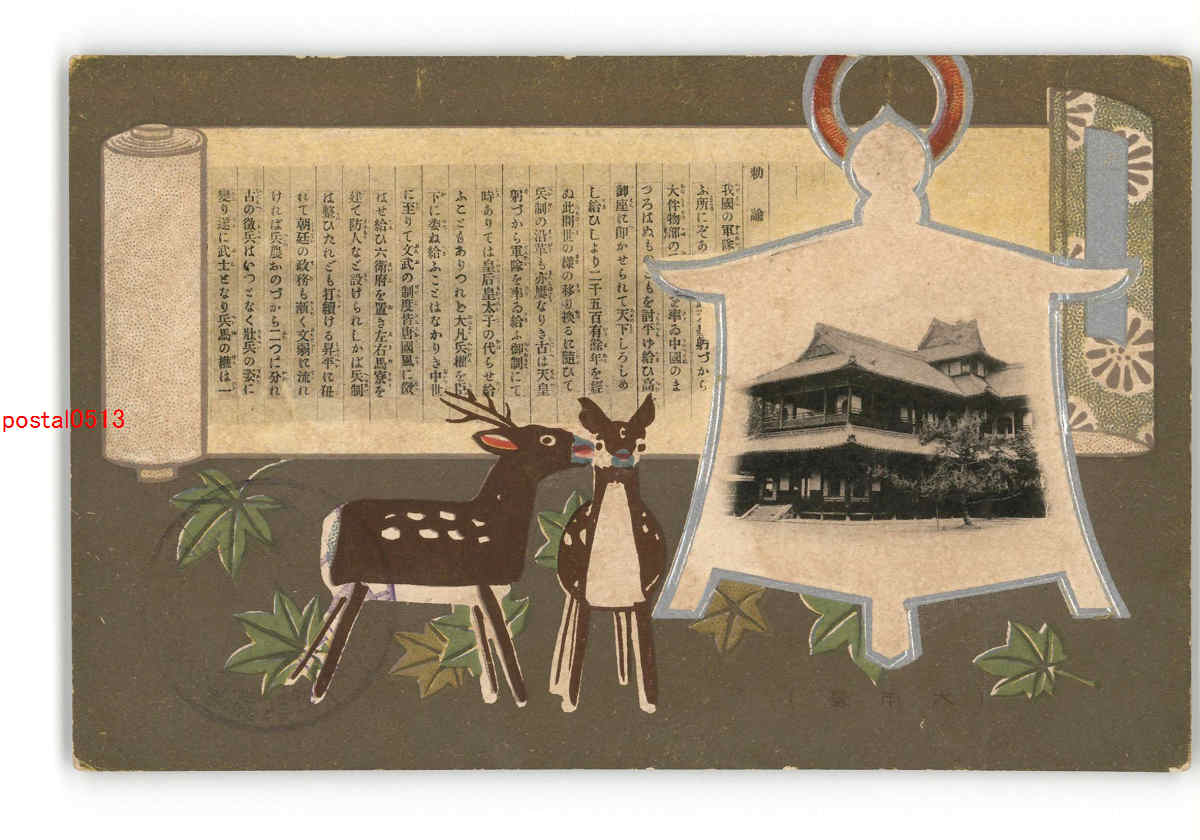 勅諭
我國の軍隊
ふ所にぞあ 躬づから
大伴物部の を率ゐ中國のま
つろはぬも もを討平げ給ひ高
御座に即かせられて天下しろしめ
し給ひしより二千五百有餘年を經
ぬ此間世の樣の移り換るに隨ひて
兵制の沿革も亦屢なりき古は天皇
躬づから軍隊を率ゐ給ふ御制にて
時ありては皇后皇太子の代らせ給
ふこともありつれど大凡兵權を臣
下に委ね給ふことはなかりき中世
に至りて文武の制度皆唐國風に傚
はせ給ひ六衛府を置き左右馬寮を
建て防人など設けられしかば兵制
は整ひたれども打續ける昇平に狃
れて朝廷の政務も漸く文弱に流れ
ければ兵農おのづから二つに分れ
古の徴兵はいつとなく壯兵の姿に
變り遂に武士となり兵馬の權は一
postal0513